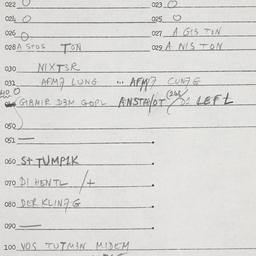 022 O 023 O
024 O 025 O
026 O 027 A GIS TIN
028 A STOS TON 029 A NIS TON
030 NIXT3R
031 AFM7 LUNG ... AFM7 CUN7G
40 O
GIBMIR D3M GOPL ANSTA/OT DI LEFL
050
051 —
060 St TUMP1K
070 DI HENTL /+
080 DER KLIN7G
090 —
100 VOS TUTM3N MIDEM